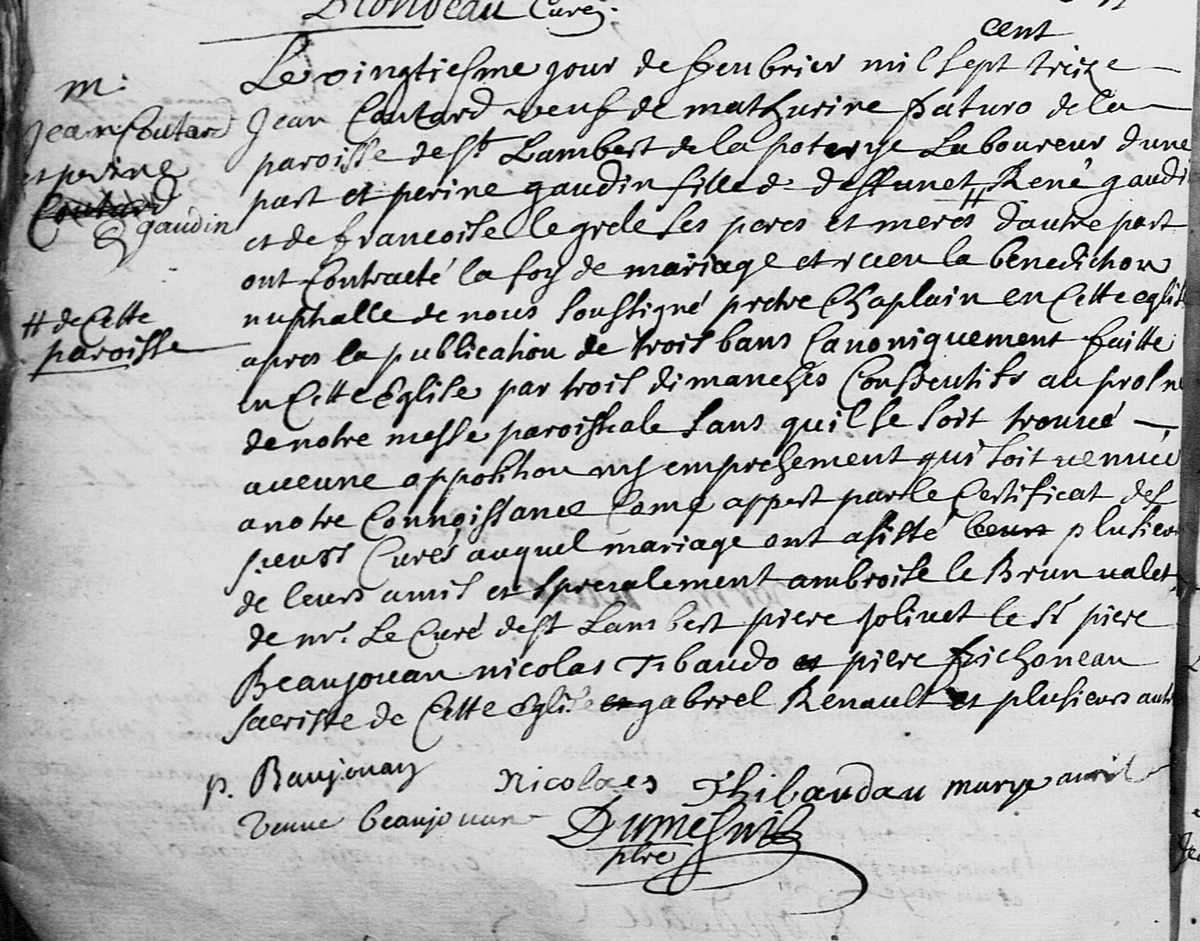 Blondeau Curé
cent
Le vingtiesme jour de feubrier mil sept treize
m.
Jean Coutard
et perine
Coutard
gaudin
Jean Coutard veuf de mathurine faturo de la
paroisse de St Lambert de la poterye Laboureur dune
part et perine gaudin fille de deffunct René gaudi
et de francoise le grele ses peres et meres # dautre part
ont Contracté la foy de mariage et receu la benediction
# de Cette
paroisse
nuptialle de nous soussigné pretre Chaplain en Cette eglise
apres la publication de trois bans Canoniquement faitte
en Cette Eglise par trois dimanches Consecutifs au prosne
de notre messe paroissiale sans quil se soit trouué
aucune opposition ny empeschement qui soit venue
a notre Connoissance Come appert par le Certificat des
sieurs Curés auquel mariage ont asisté leurs plusieurs
de leurs amis et specialement ambroise le Brun valet
de mr. Le Curé de st Lambert piere Joliuet le Sr piere
Beaujouan nicolas Tibaudo et piere frichoneau
sacriste de Cette Eglise et gabriel Renault et plusieurs autr
p. Baujouan Nicolaes Thibaudau marye auril
veuue beaujouan
Dumesnil
pbre